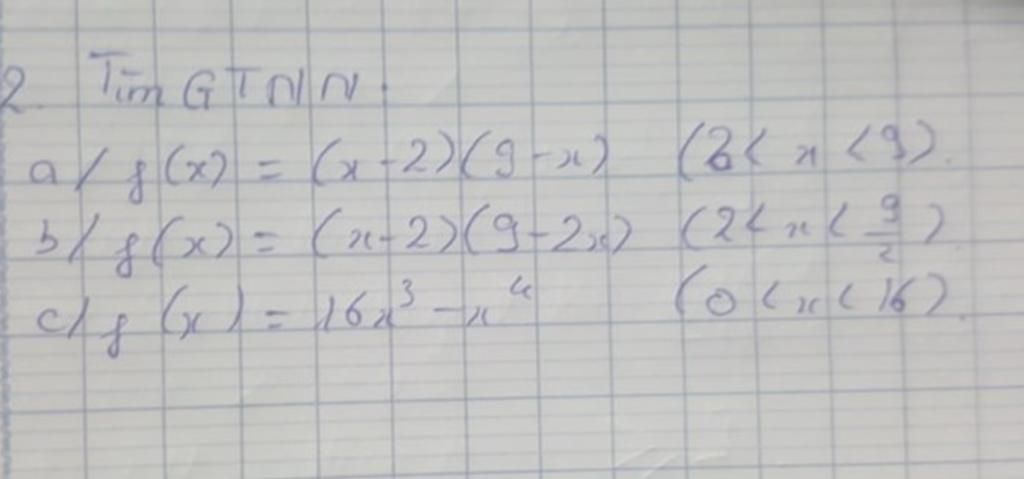 2. Tìm GTNN.
a/ f(x) = (x-2)(9-x) (2< x <9).
b/ f(x) = (x-2)(9-2x) (2< x < 9/2)
c/ f(x) = 16x³ - x⁴ (0 < x < 16).